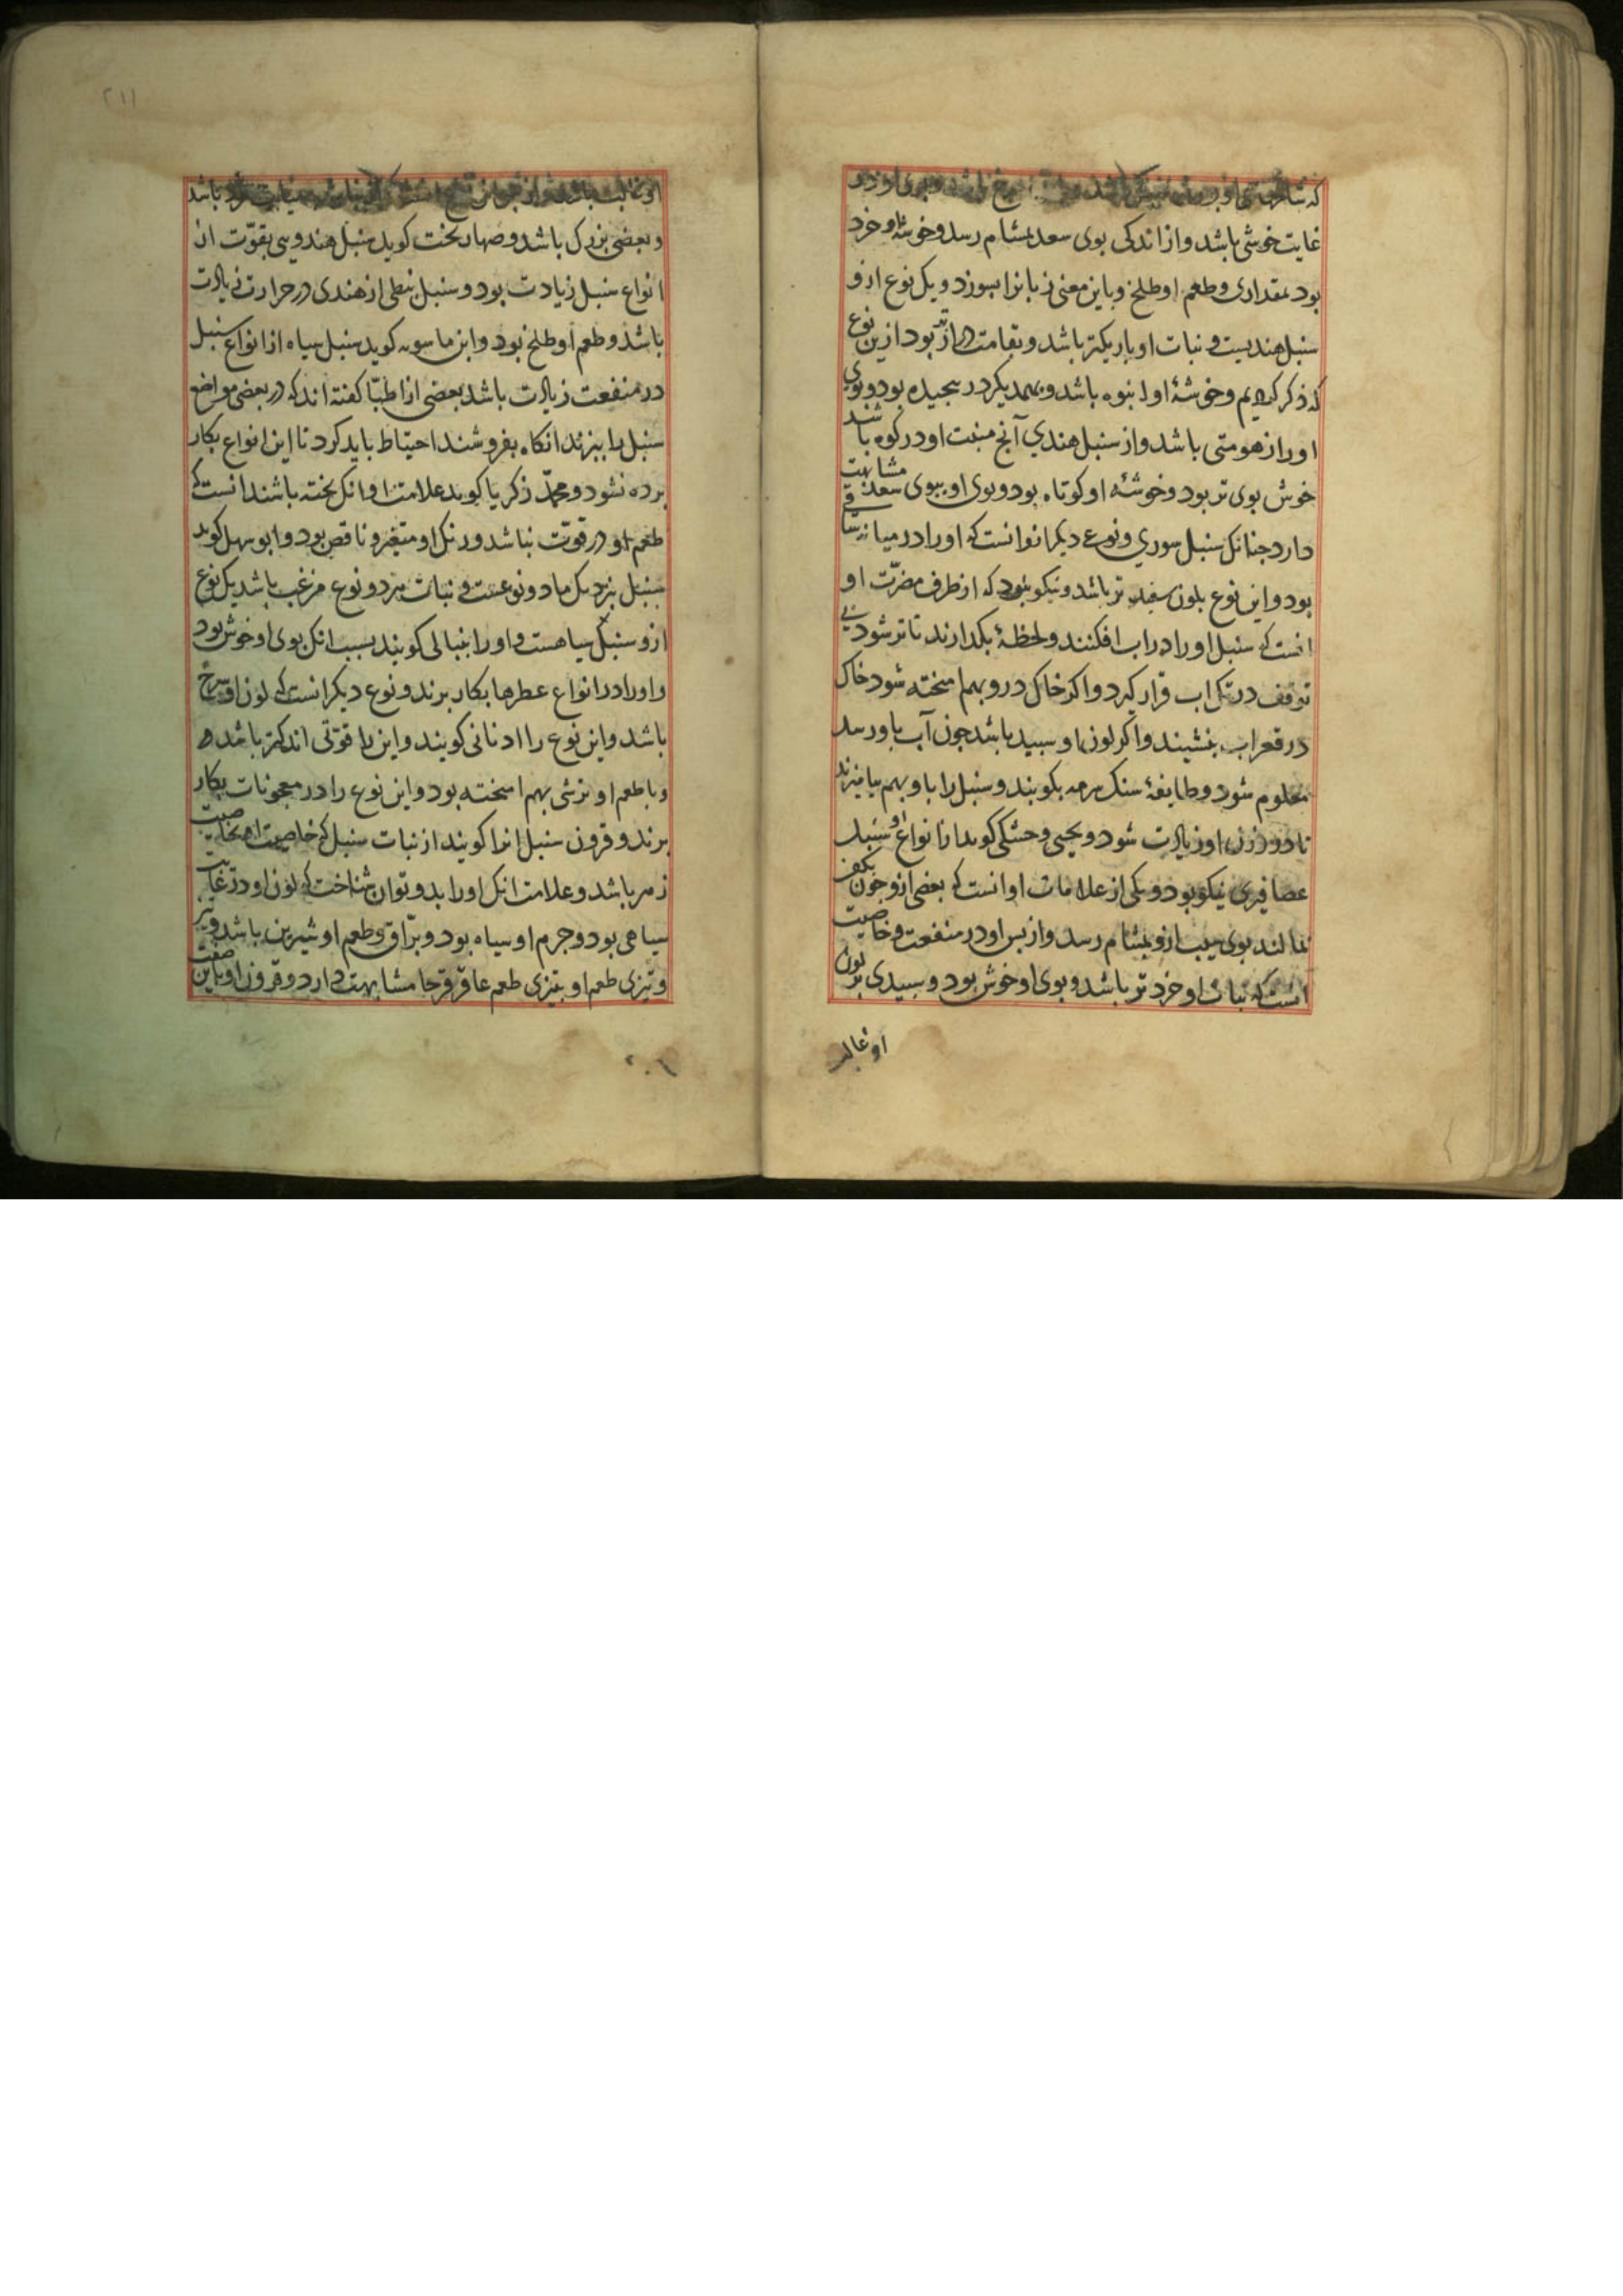 غایت خوشی باشد و از اندکی بوی سعد بمشام رسد و خوشهٔ او خرد
بود بمقداری و طعم او طلخ و باین معنی زبانرا بسوزد و یک نوع ازو
سنبل هندیست و نبات او باریکتر باشد و بقامت درازتر بود ازین نوع
که ذکر کردیم و خوشهٔ او انبوه باشد و بهمدیکر در بیجیده بود و بوی
اورا زهومتی باشد و از سنبل هندی آنج منبت او در کوه باشد
خوش بوی تر بود و خوشهٔ او کوتاه بود و بوی او ببوی سعد مشابهت
دارد جنانک سنبل سوری و نوع دیکر انواانست که اورا در میانه ساقی
بود و این نوع بلون سفید تر باشد و نیکو نبود که از طرف مضرّت او
انست که سنبل اورا در اب افکنند و لحظهٔ بکدارند تا تر شود بی
توقف در تک اب قرار کیرد و اکر خاک درو بهم امیخته شود خاک
در قعر اب بنشیند و اکر لون او سبید باشد جون آب باو رسد
معلوم شود و طایفهٔ سنک سرمه بکوبند و سنبل را باو بهم بیامیزند
تا در وزن او زیادت شود و یحیی و خشکی کوید از انواع او سنبل
عصافیری نیکو بود و یکی از علامات او انست که بعضی ازو جون بکف
بمالند بوی سیب ازو بمشام رسد و از بس او در منفعت و خاصیت
انست که نبات او خرد تر باشد و بوی او خوش بود و سبیدی بر لون
او غالب
۲۱۱
و بعضی بزرک باشد و صهاربخت کوید سنبل هندو سی بقوّت از
انواع سنبل زیادت بود و سنبل نبطی از هندی در حرارت زیادت
باشد و طعم او طلخ بود و ابن ماسویه کوید سنبل سیاه از انواع سنبل
در منفعت زیادت باشد بعضی از اطبّا کفته اند که در بعضی مواضع
سنبل را ببزند انکاه بفروشند احتیاط باید کرد تا این انواع بکار
برده نشود و محمّد زکریا کوید علامت او انک بخته باشند انست که
طعم او در قوّت نباشد و رنک او متغیر و ناقص بود و ابو سهل کوید
سنبل نزدیک ما دو نوعست و نبات هر دو نوع مزغب باشد یک نوع
ازو سنبل سیاهست و اورا بنبالی کویند بسبب انک بوی او خوش بود
و اورا در انواع عطرها بکار برند و نوع دیکر انست که لون او سرخ
باشد و این نوع را ادنانی کویند و این را قوّتی اندکتر باشد
و با طعم او ترشی بهم امیخته بود و این نوع را در معجونات بکار
برند و قرون سنبل انرا کویند از نبات سنبل که خاصیت او همخاصیت
زهر باشد و علامت انک اورا بدو توان شناخت که لون او در غایت
سیاهی بود و جرم او سیاه بود و برّاق و طعم او شیرین باشد و تیز
و تیزی طعم او بتیزی طعم عاقرقرحا مشابهت دارد و قرون او باین صفت